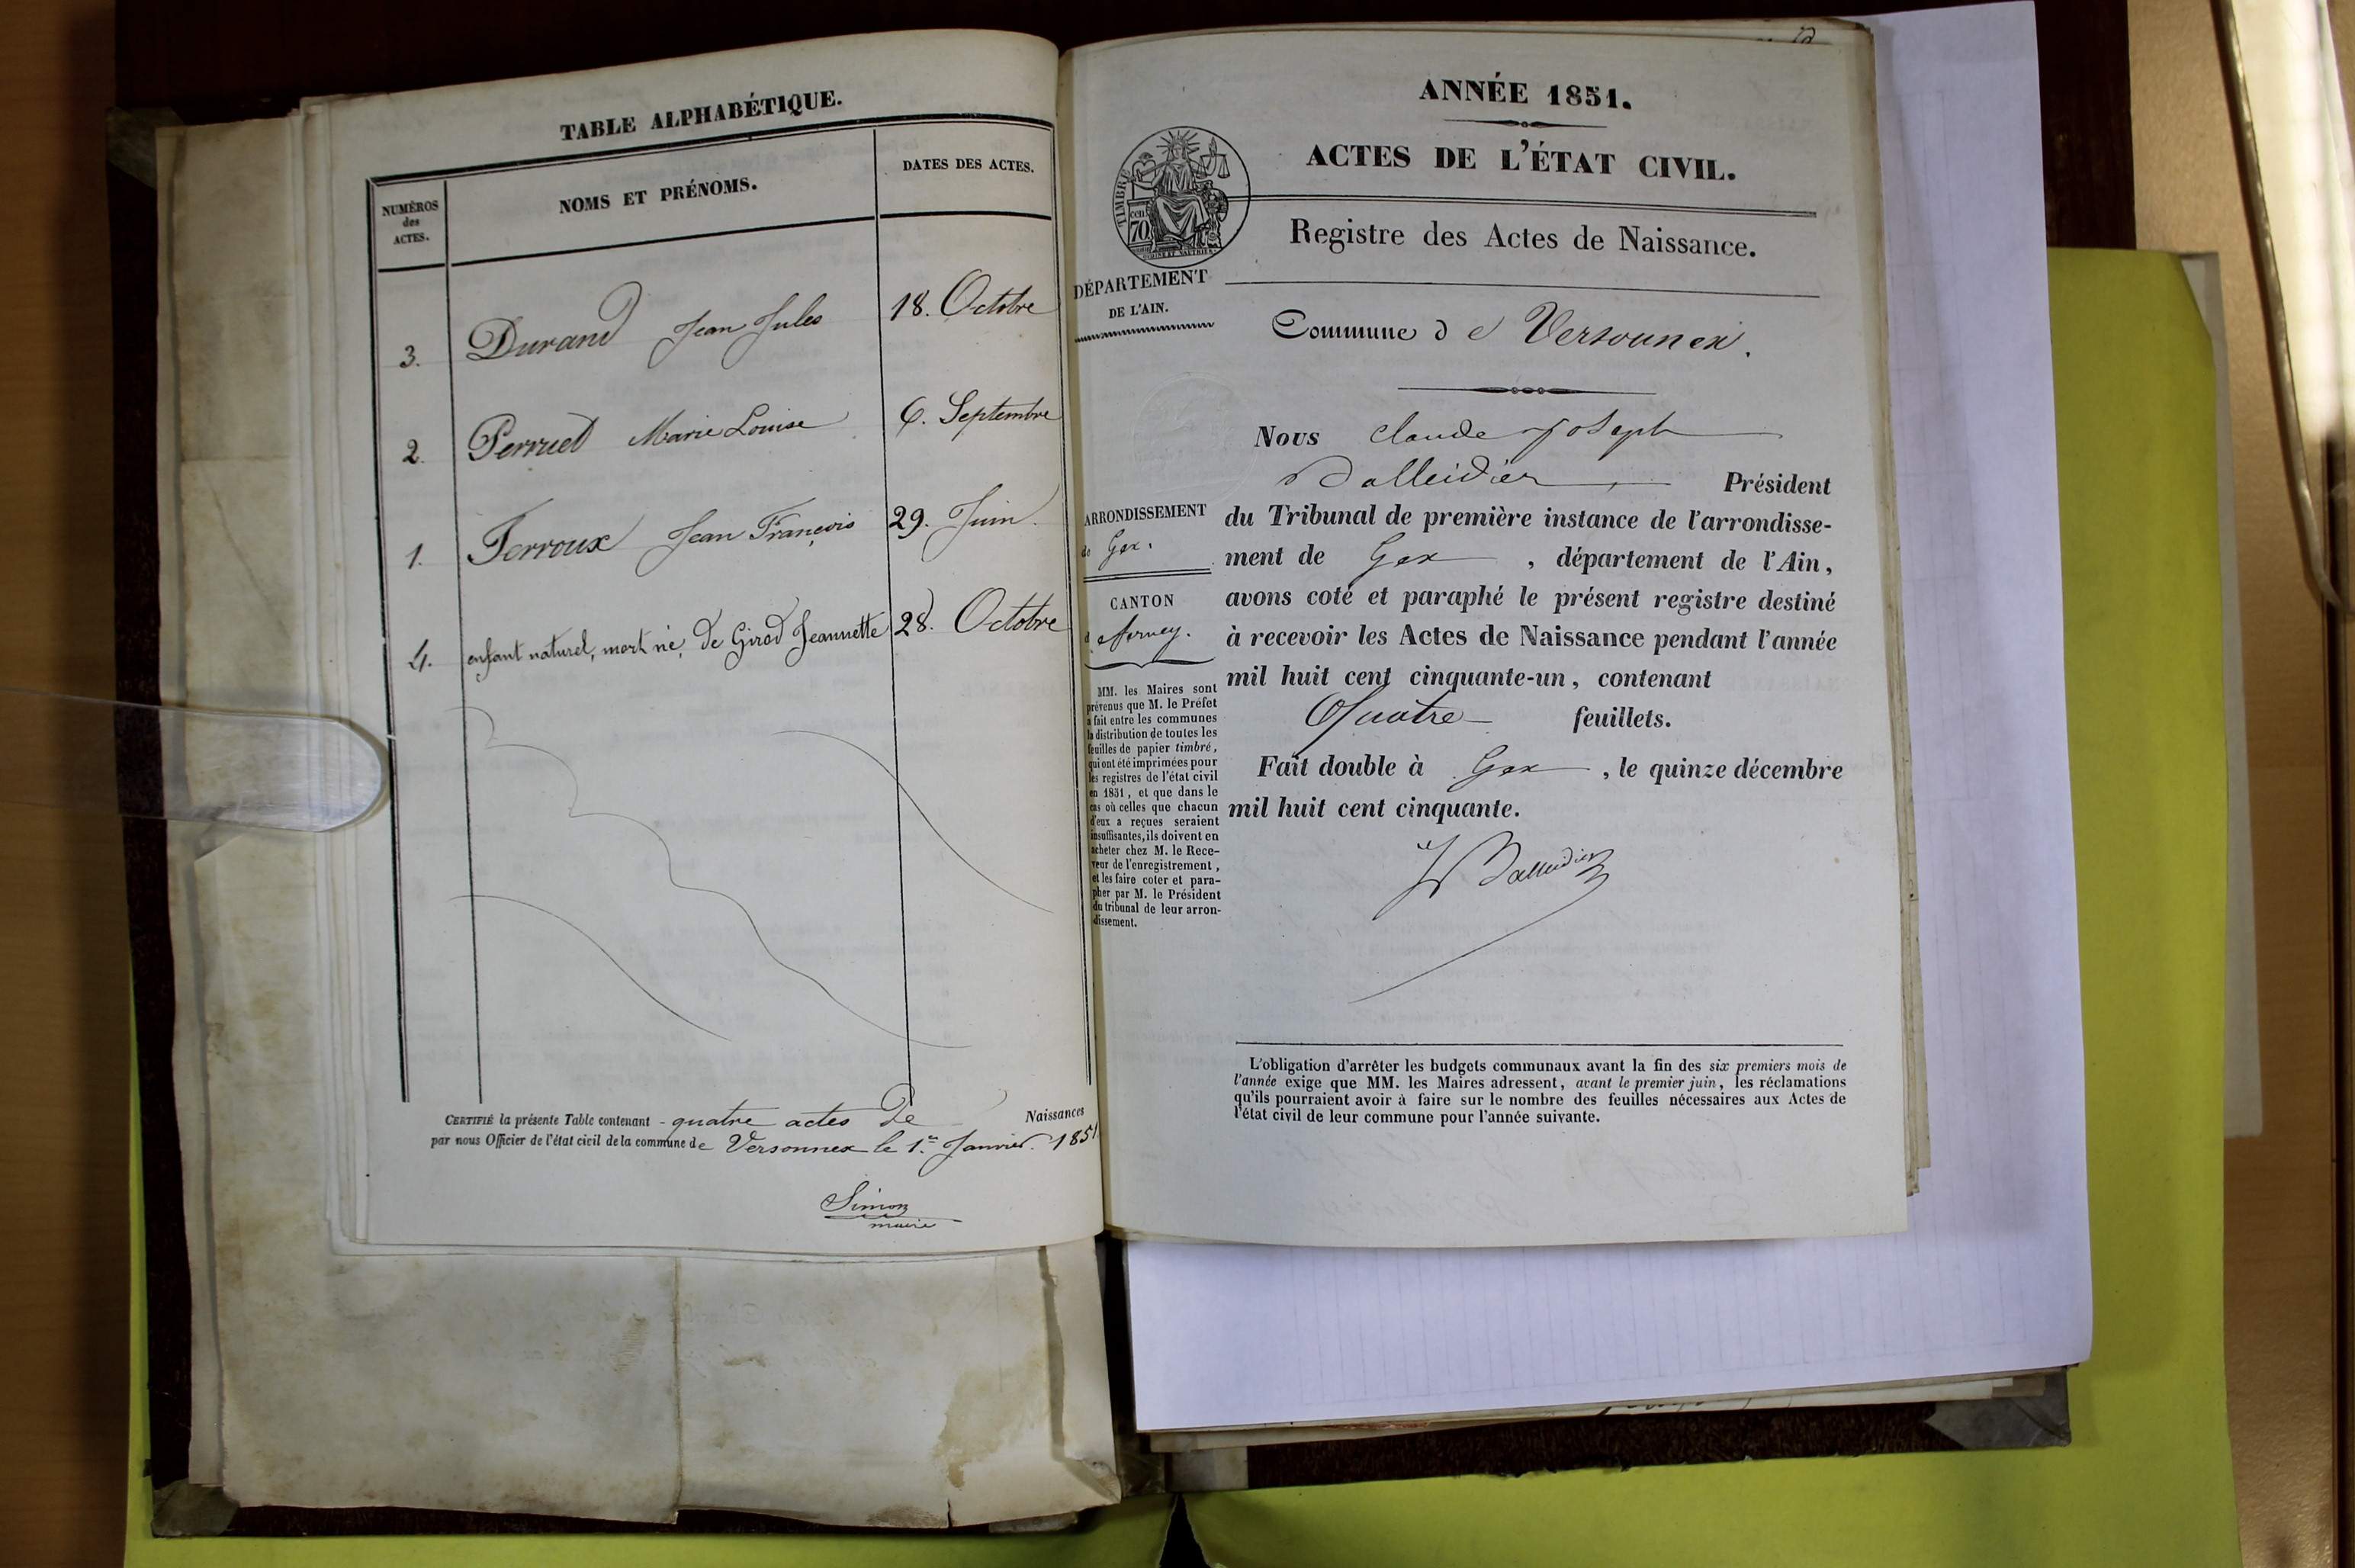 TABLE ALPHABÉTIQUE.
NUMÉROS
des
ACTES.
NOMS ET PRÉNOMS.
DATES DES ACTES.
3. Durand Jean Jules 18. Octobre
2. Perruet Marie Louise 6. Septembre
1. Terroux Jean François 29. Juin.
4. enfant naturel, mort né, de Girod Jeannette 28. Octobre
CERTIFIÉ la présente Table contenant - quatre actes de Naissances
par nous Officier de l'état civil de la commune de Versonnex le 1.er Janvier. 1851
Simon
maire
ANNÉE 1851.
ACTES DE L'ÉTAT CIVIL.
TIMBRE
cen.
70
Registre des Actes de Naissance.
DÉPARTEMENT
DE L'AIN.
Commune de Versounex.
Nous Claude Joseph
Balleidier Président
ARRONDISSEMENT
de Gex.
CANTON
du Tribunal de première instance de l'arrondisse-
ment de Gex , département de l'Ain,
avons coté et paraphé le présent registre destiné
à recevoir les Actes de Naissance pendant l'année
mil huit cent cinquante-un, contenant
Quatre feuillets.
Fait double à Gex , le quinze décembre
mil huit cent cinquante.
Balleidier
MM. les Maires sont
prévenus que M. le Préfet
a fait entre les communes
la distribution de toutes les
feuilles de papier timbré,
qui ont été imprimées pour
les registres de l'état civil
en 1851, et que dans le
cas où celles que chacun
d'eux a reçues seraient
insuffisantes, ils doivent en
acheter chez M. le Rece-
veur de l'enregistrement,
et les faire coter et para-
pher par M. le Président
du tribunal de leur arron-
dissement.
L'obligation d'arrêter les budgets communaux avant la fin des six premiers mois de
l'année exige que MM. les Maires adressent, avant le premier juin, les réclamations
qu'ils pourraient avoir à faire sur le nombre des feuilles nécessaires aux Actes de
l'état civil de leur commune pour l'année suivante.